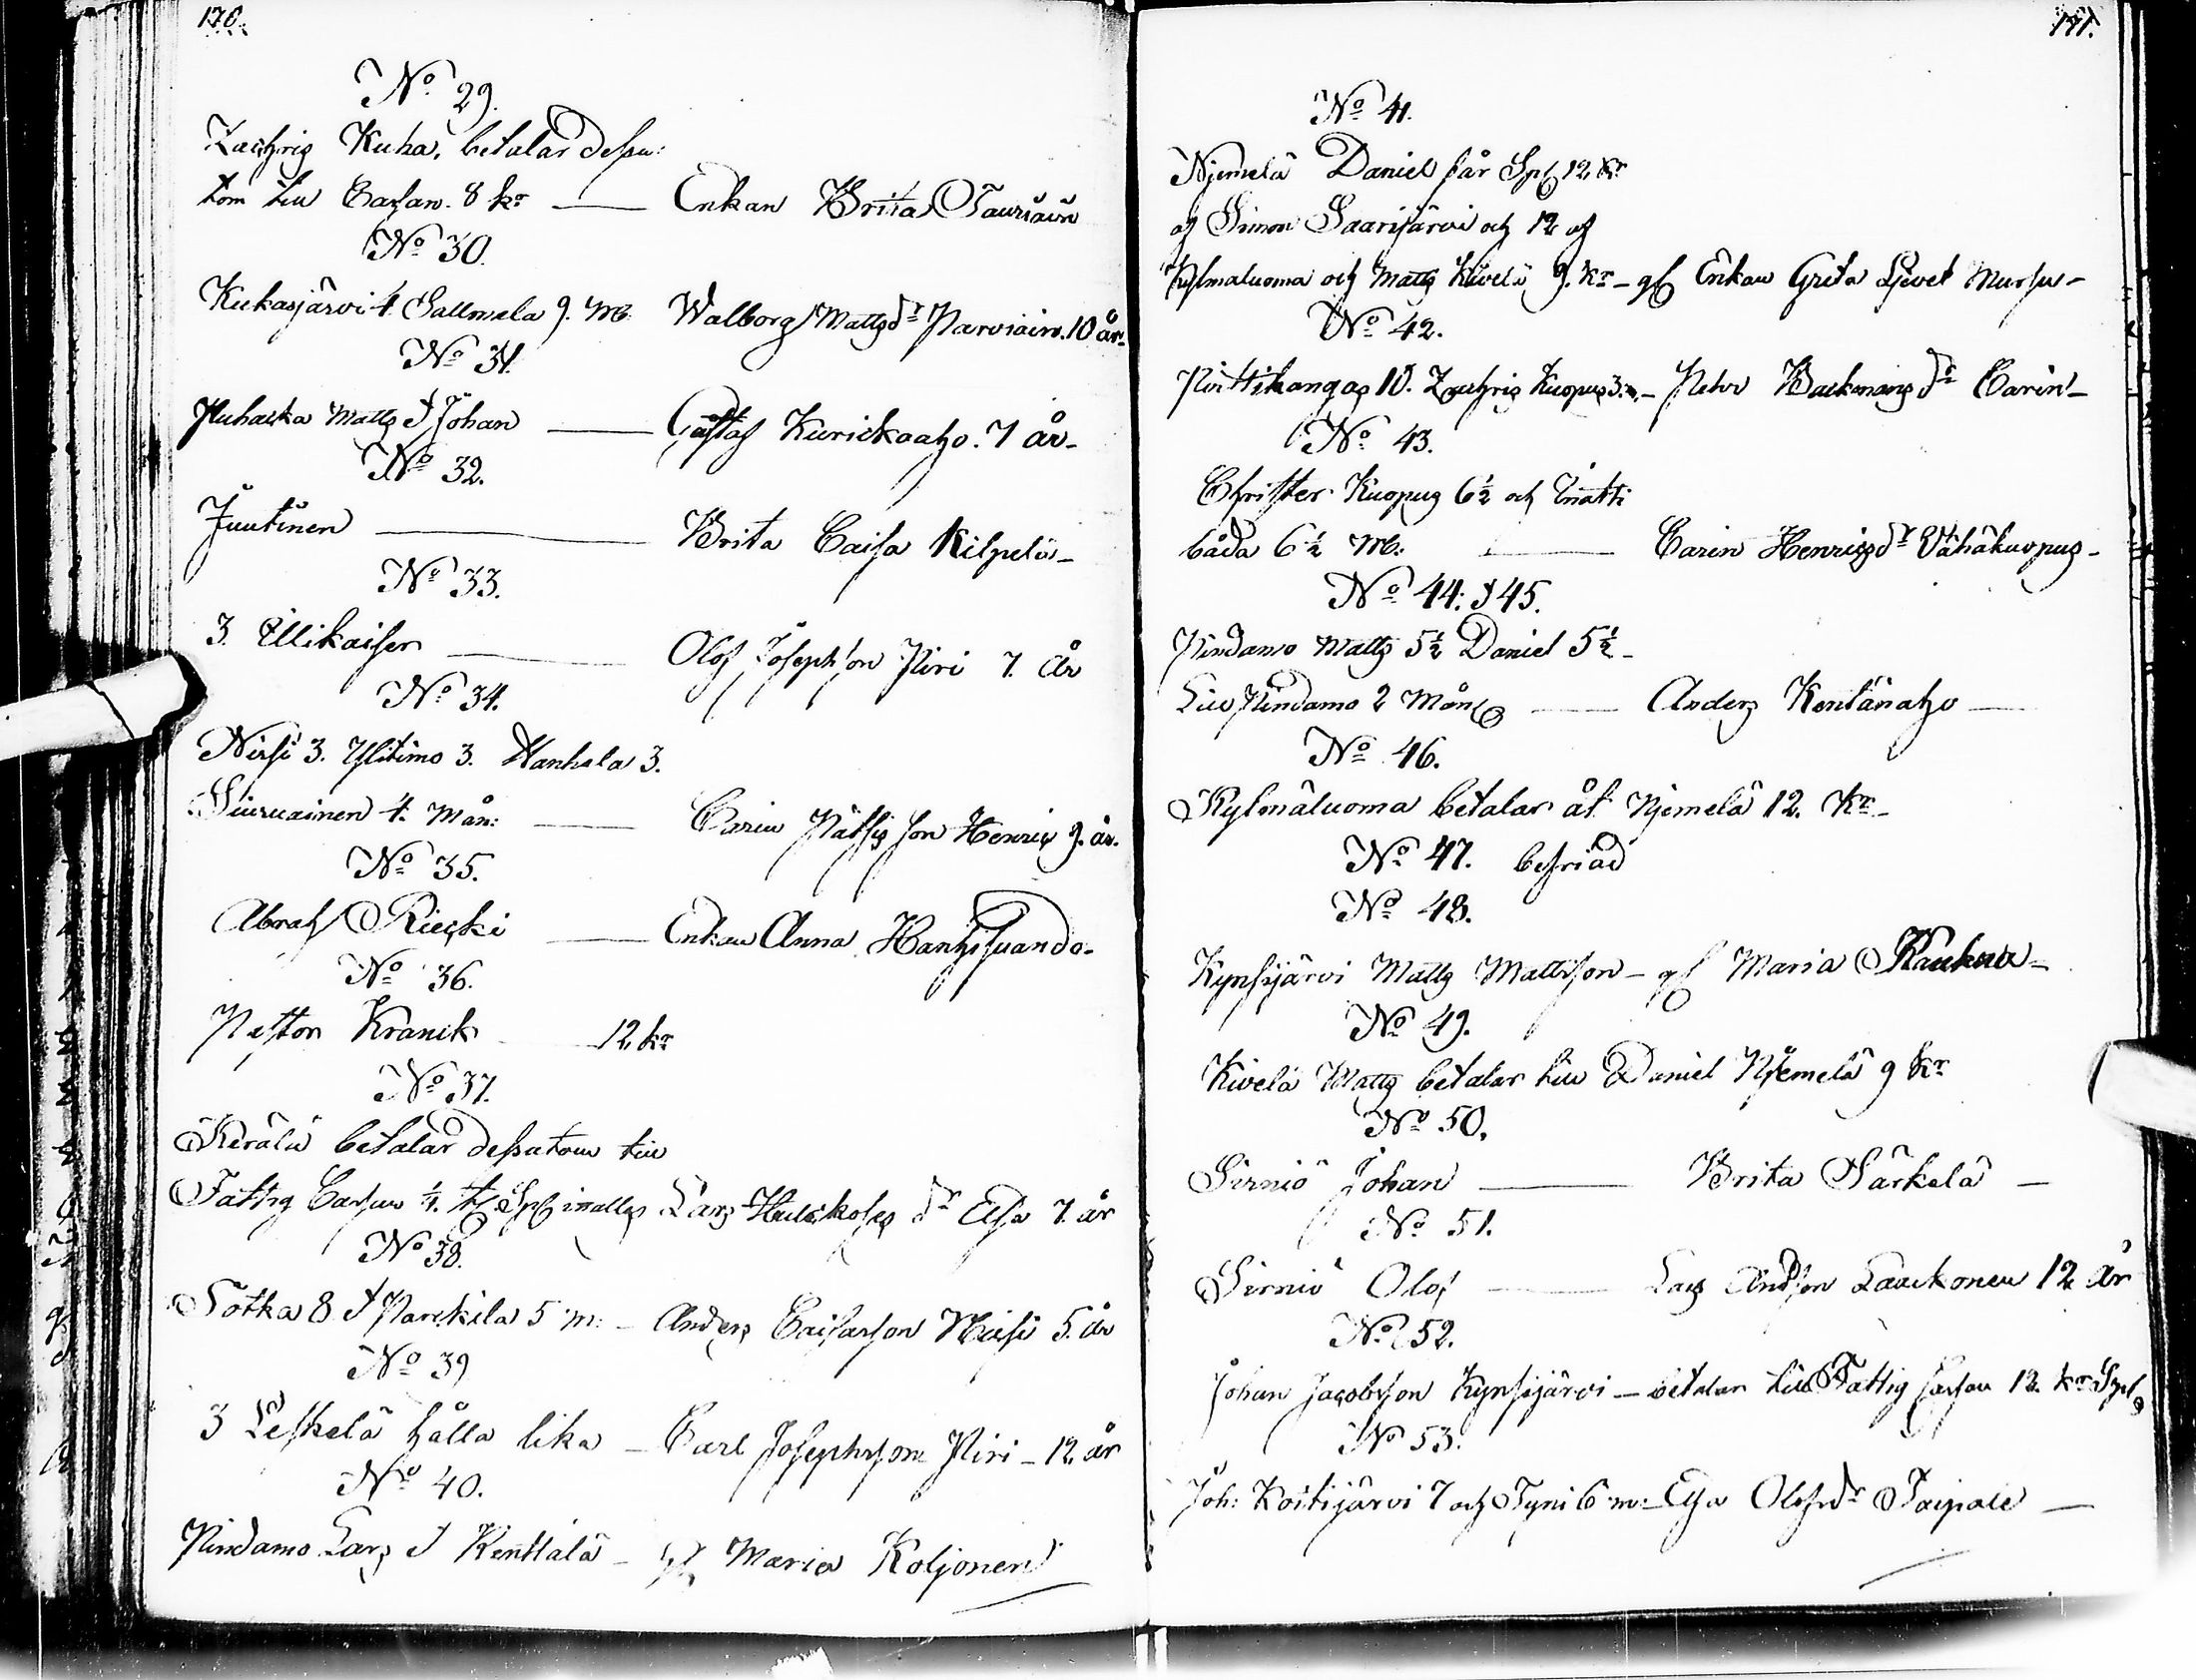 170.
No 29.
Zachris Kuha, betalar dessu:
tom till Cassan. 8 kr — Enkan Brita Tauriain
No 30.
Kukasjärvi 4. Sallmela 9. M. Walborg Mattsdr Parviain. 10 år.
No 31.
Puhacka Matts & Johan — Gustaf Kurickaaho. 7 år.
No 32.
Juutinen — Brita Caisa Kilpelä
No 33.
3. Illikaisen — Olof Josephson Piri 7. år
No 34.
Niesi 3. Ylitimo 3. Wanhala 3.
Siuruainen 4. Mån: — Carin Pätsis son Henric 9. år.
No 35.
Abrah Riecki — Enkan Anna Hanhisuando.
No 36.
Pastor Kranck 12 kr
No 37.
Kerälä betalar dessutom till
Fattig Cassan 4. Lars dr Elsa 7. år
No 38.
Sotka 8 & Parckila 5 m: — Anders Caisason Niesi 5. år
No 39
3 Leskelä hålla lika — Carl Josephson Piri — 12 år
No 40.
Pindamo Lars & Kenttälä — Maria Koljonen
171.
No 41.
Njemelä Daniel får Spl 12 kr
af Simon Saarijärvi och 12 af
Kylmaluoma och Matts Kivelä 9. kr — gl Enkan Greta Mursu —
No 42.
Pirttikangas 10. Zachris Kuopus 3. m. — Petr Backmans dr Carin —
No 43.
Christer Kuopus 6½ och
båda 6½ M. — Carin Henricsdr Vähäkuopus —
No 44. & 45.
Pindamo Matts 5½ Daniel 5½ —
Pindamo 2 Mån — Anders Kentänaho —
No 46.
Kylmäluoma betalar åt Njemelä 12. Kr —
No 47. befriad
No 48.
Kynsijärvi Matts Mattsson — gl Maria Raukua —
No 49.
Kivelä Matts betalar till Daniel Njemelä 9 kr
No 50.
Sirniö Johan — Brita Särkelä —
No 51.
Sirniö Olof — Lars Andson Laackonen 12 år
No 52.
Johan Jacobson Kynsijärvi — betalar till Fattig Cassan 12. kr Spl
No 53.
Joh: Kostijärvi 7 och Tyni 6 m: — Elsa Olofsdr Taipale —